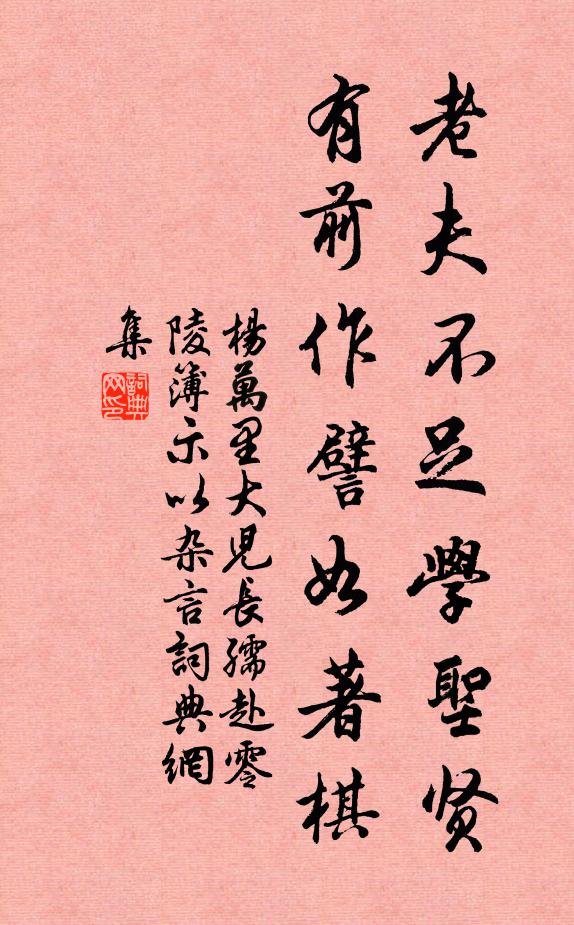 老夫不足學聖贤
有前作譬如著棋
楊萬里大児長孺赴零
陵簿示以杂言詞典網
集
詞典網印